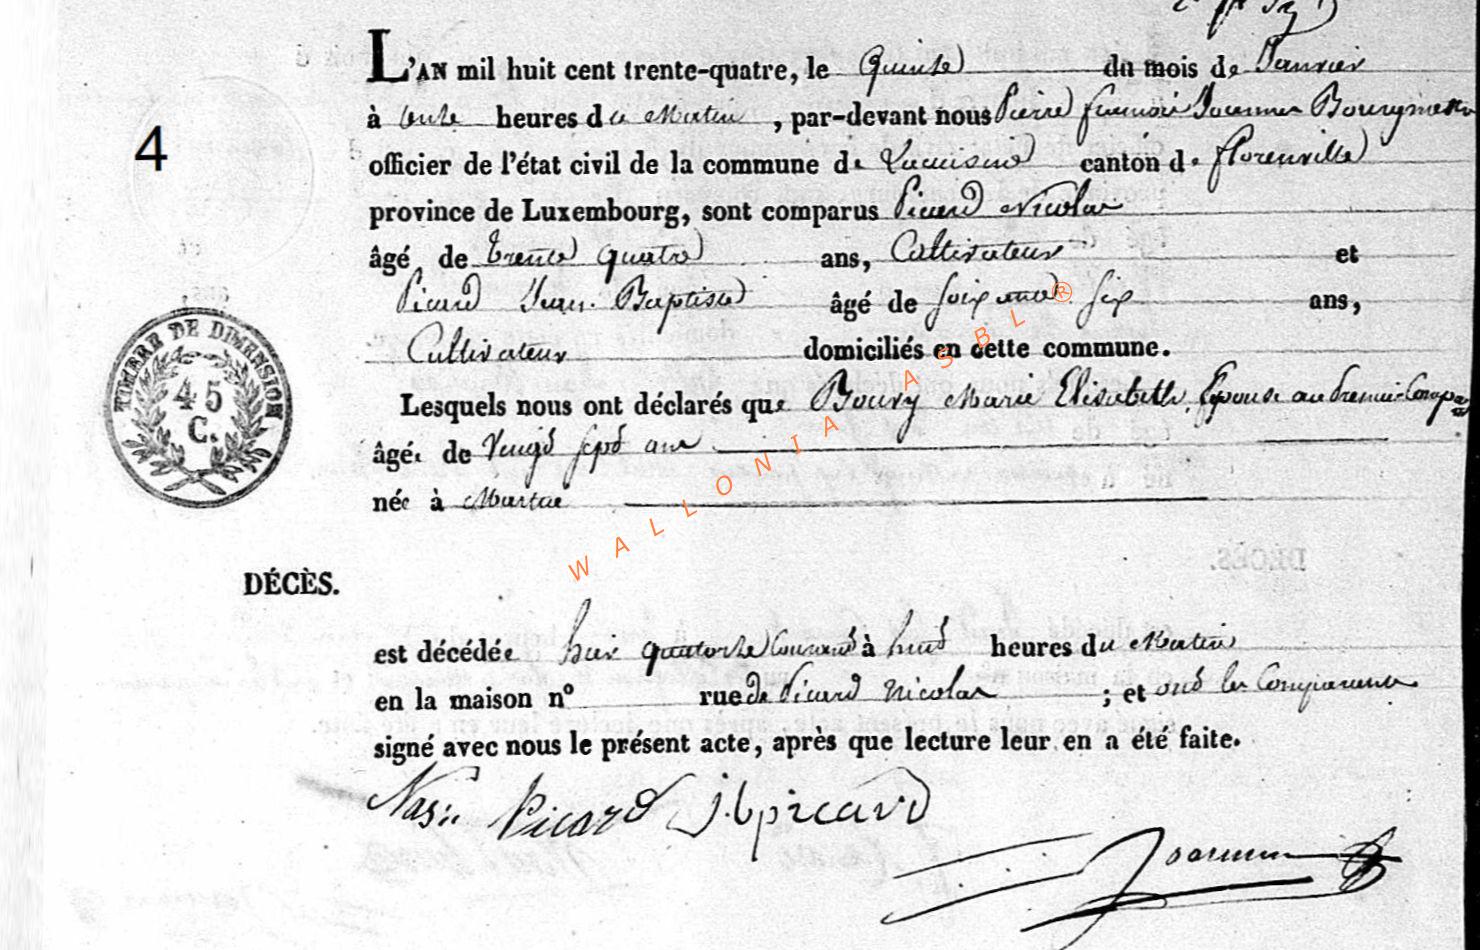 L'AN mil huit cent trente-quatre, le Quinze du mois de Janvier
à onze heures du Matin, par-devant nous Pierre françois Joannes Bourgmestre
officier de l'état civil de la commune de canton de florenville
province de Luxembourg, sont comparus Picard Nicolas
âgé de trente quatre ans, Cultivateur et
Picard Jean Baptiste âgé de soixante six ans,
Cultivateur domiciliés en cette commune.
Lesquels nous ont déclarés que Boury Marie Elisabeth, Epouse au Premier Comparant
âgée de Vingt sept ans
née à Martué
4
TIMBRE DE DIMENSION
45
C.
WALLONIA ASBL ®
DÉCÈS.
est décédée hier quatorze Courant à huit heures du Matin
en la maison nº rue de Picard Nicolas ; et ont les Comparants
signé avec nous le présent acte, après que lecture leur en a été faite.
Picard J. b picard